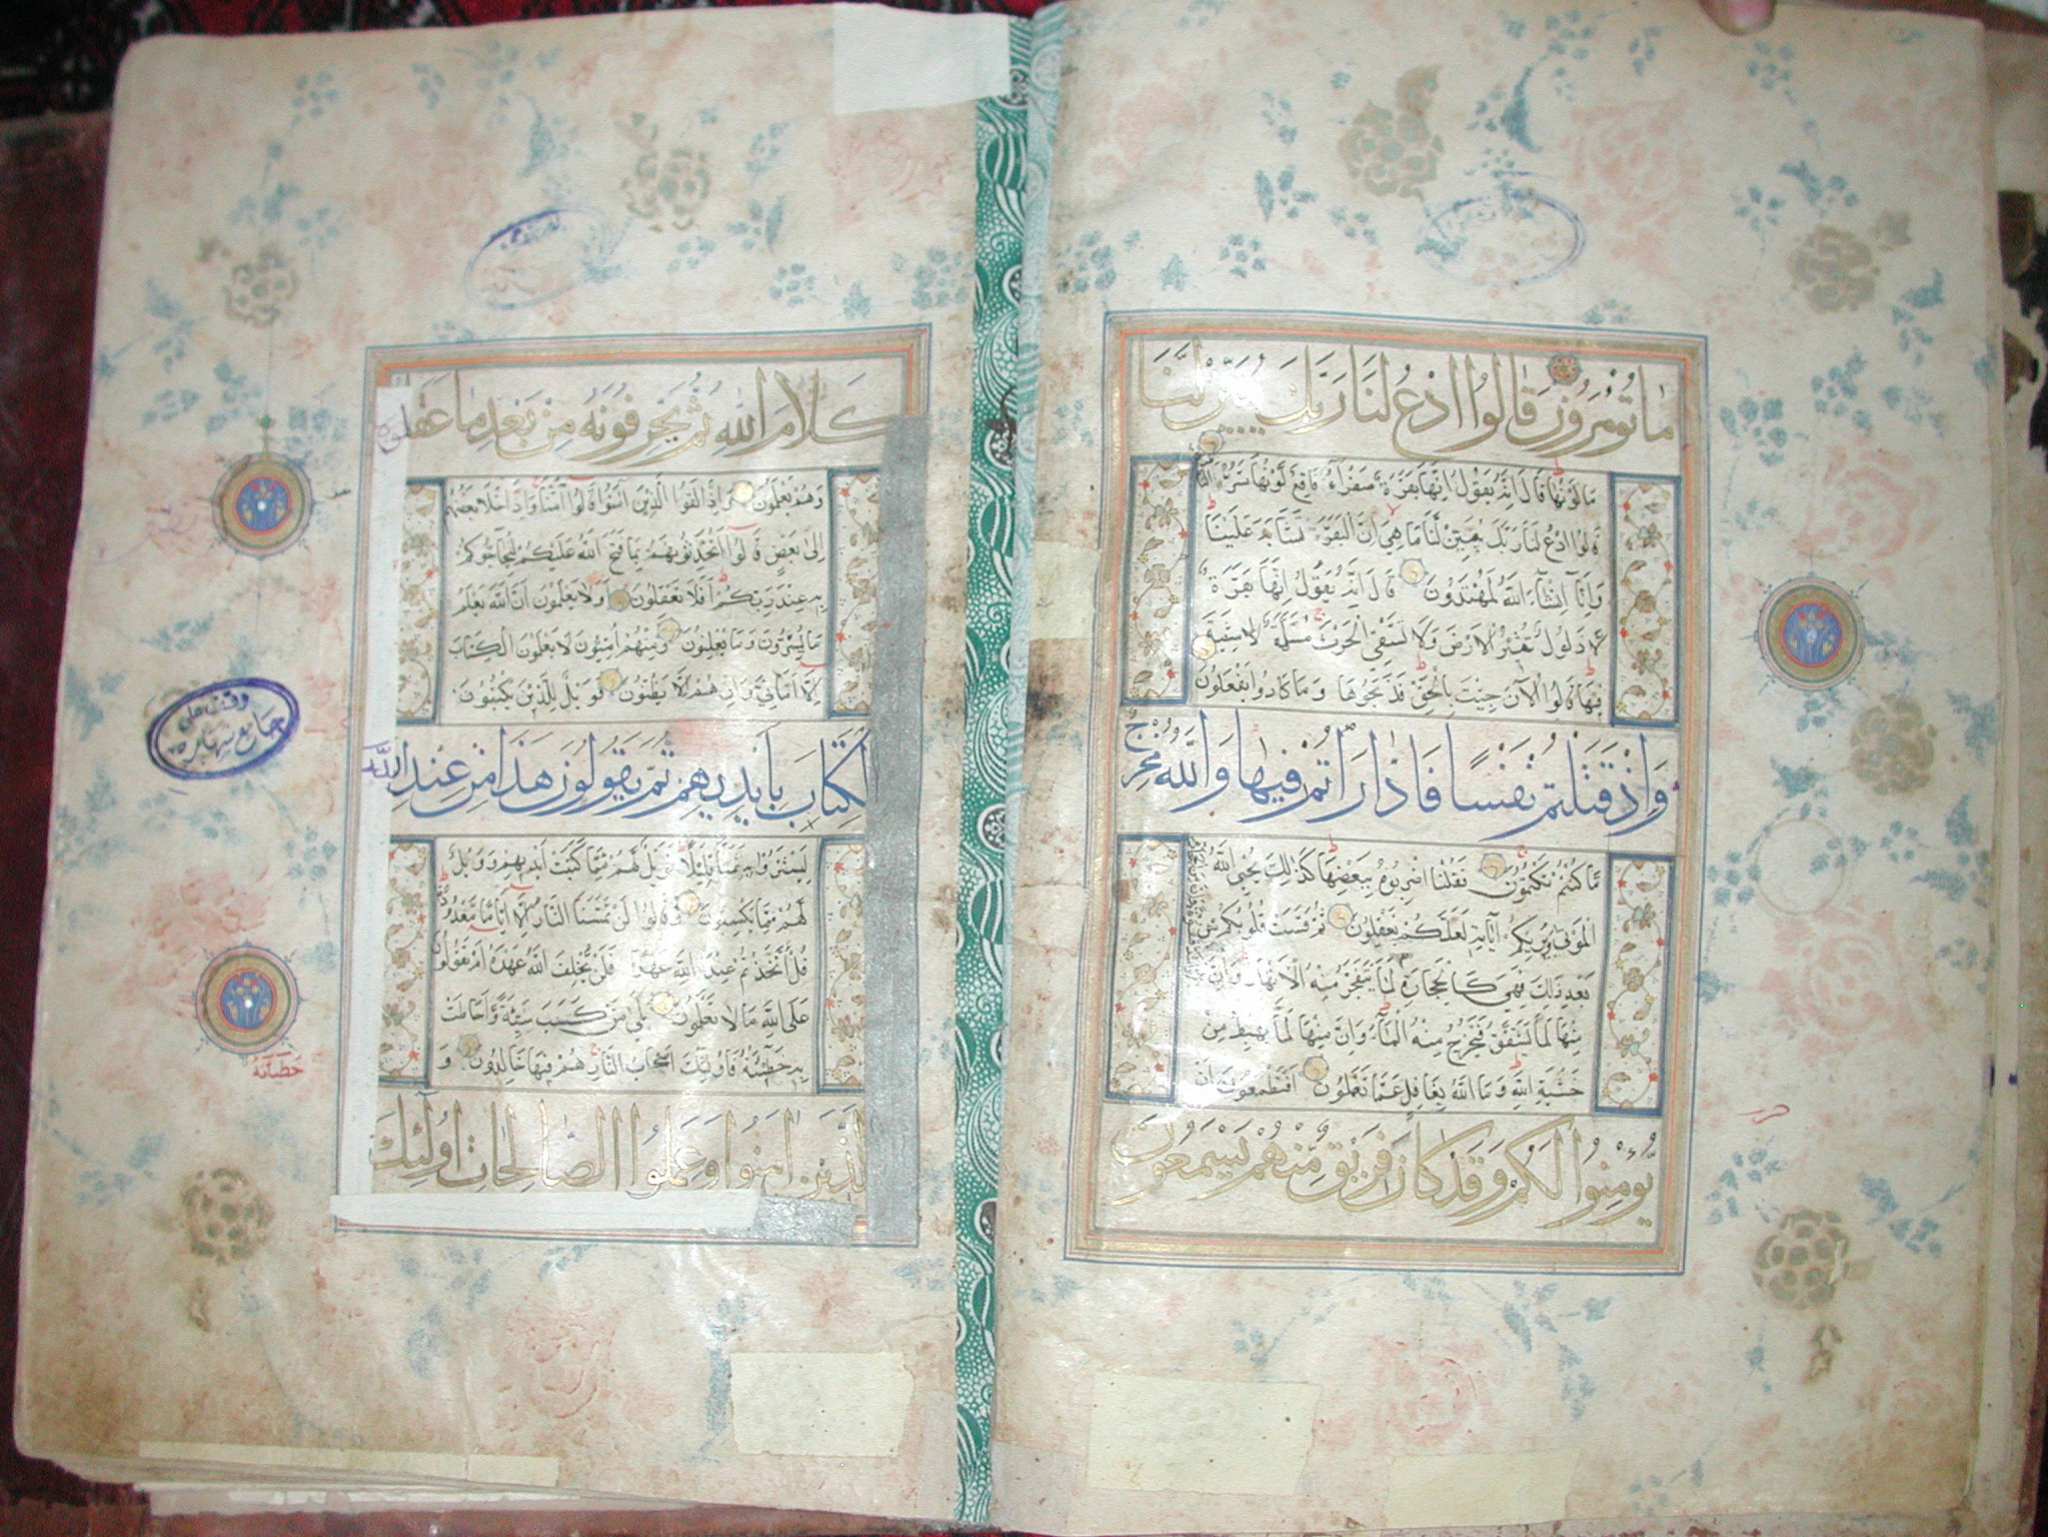 ما تؤمرون قالوا ادع لنا ربك يبين لنا
ما لونها قال انه يقول انها بقرة صفراء فاقع لونها تسر
قالوا ادع لنا ربك يبين لنا ما هي ان البقر تشابه علينا
وانا ان شاء الله لمهتدون قال انه يقول انها بقرة
لا ذلول تثير الارض ولا تسقي الحرث مسلمة لا شية
فيها قالوا الآن جئت بالحق فذبحوها وما كادوا يفعلون
واذ قتلتم نفسا فادارأتم فيها والله مخرج
ما كنتم تكتمون فقلنا اضربوه ببعضها كذلك يحيي الله
الموتى ويريكم آياته لعلكم تعقلون ثم قست قلوبكم من
بعد ذلك فهي كالحجارة لما يتفجر منه الانهار وان
منها لما يشقق فيخرج منه الماء وان منها لما يهبط من
خشية الله وما الله بغافل عما تعملون افتطمعون ان
يؤمنوا لكم وقد كان فريق منهم يسمعون
كلام الله ثم يحرفونه من بعد ما عقلوه
وهم يعلمون واذا لقوا الذين آمنوا قالوا آمنا واذا خلا بعضهم
الى بعض قالوا اتحدثونهم بما فتح الله عليكم ليحاجوكم
به عند ربكم افلا تعقلون اولا يعلمون ان الله يعلم
ما يسرون وما يعلنون ومنهم اميون لا يعلمون الكتاب
الا اماني وان هم الا يظنون فويل للذين يكتبون
الكتاب بايديهم ثم يقولون هذا من عند الله
ليشتروا به ثمنا قليلا فويل لهم مما كتبت ايديهم وويل
لهم مما يكسبون وقالوا لن تمسنا النار الا اياما معدودة
قل اتخذتم عند الله عهدا فلن يخلف الله عهده ام تقولون
على الله ما لا تعلمون بلى من كسب سيئة واحاطت
به خطيئته فاولئك اصحاب النار هم فيها خالدون و
الذين آمنوا وعملوا الصالحات اولئك
خطيآته